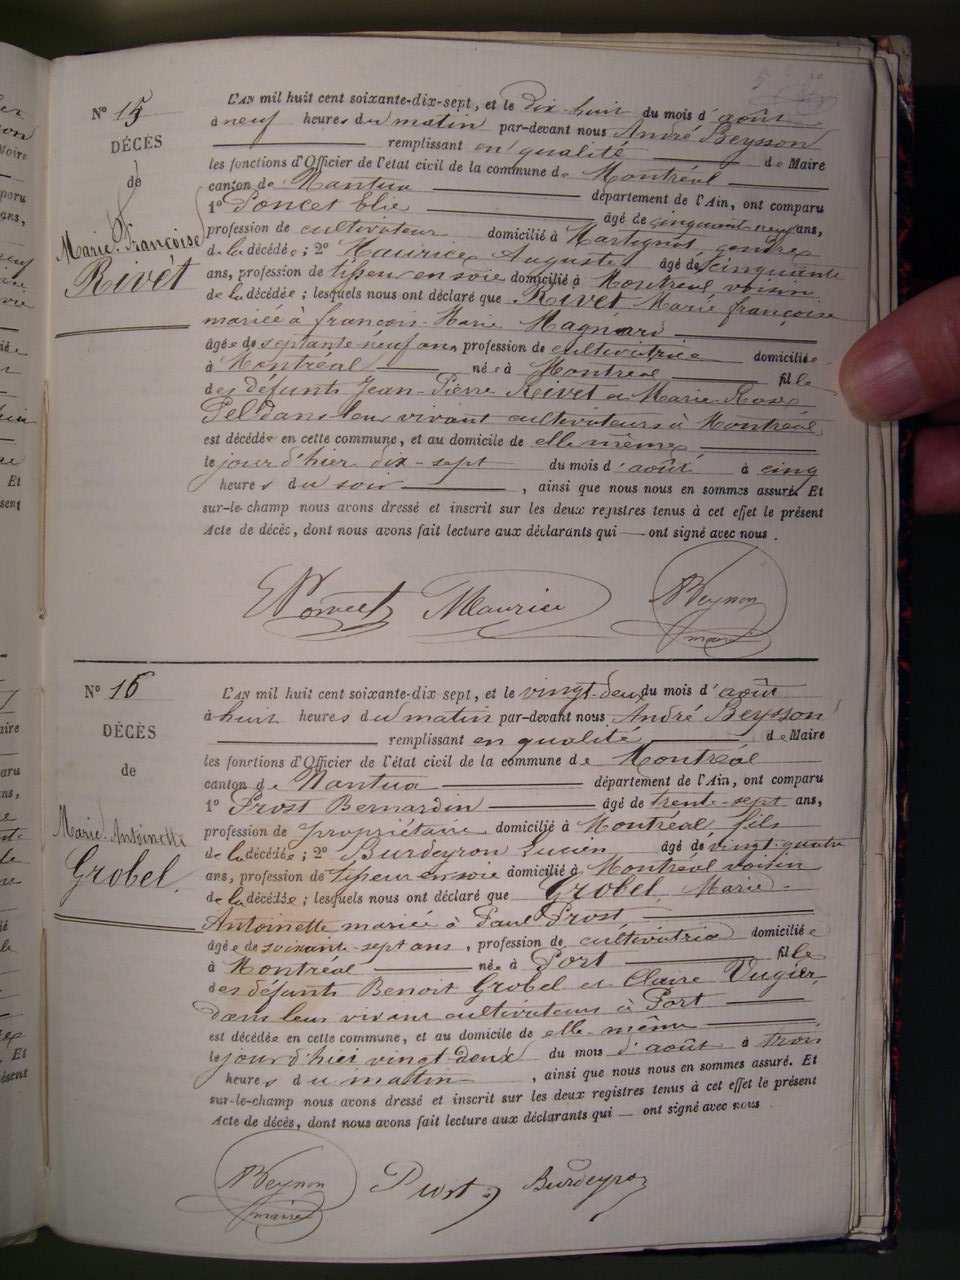 Nº 15
DÉCÈS
de
Marie Françoise
Rivet
L'AN mil huit cent soixante-dix-sept, et le dix huit du mois d'août
à neuf heures du matin par-devant nous André Beysson
remplissant en qualité de Maire
les fonctions d'Officier de l'état civil de la commune de Montréal
canton de Nantua département de l'Ain, ont comparu
1º Poncet Elie âgé de cinquante neuf ans,
profession de cultivateur domicilié à Martignat gendre
de la décédée; 2º Maurice Auguste âgé de cinquante
ans, profession de tisseur en soie domicilié à Montréal voisin
de la décédée; lesquels nous ont déclaré que Rivet Marie françoise
mariée à françois-Marie Magnard
âgée de septante neuf ans, profession de cultivatrice domiciliée
à Montréal née à Montréal fille
des défunts Jean-Pierre Rivet et Marie-Rose
Pel dans leur vivant cultivateurs à Montréal
est décédée en cette commune, et au domicile de elle même
le jour d'hier dix-sept du mois d'août à cinq
heures du soir, ainsi que nous nous en sommes assuré. Et
sur-le-champ nous avons dressé et inscrit sur les deux registres tenus à cet effet le présent
Acte de décès, dont nous avons fait lecture aux déclarants qui ont signé avec nous.
E Poncet Maurice Beysson
maire
Nº 16
DÉCÈS
de
Marie Antoinette
Grobel
L'AN mil huit cent soixante-dix sept, et le vingt-deux du mois d'août
à huit heures du matin par-devant nous André Beysson
remplissant en qualité de Maire
les fonctions d'Officier de l'état civil de la commune de Montréal
canton de Nantua département de l'Ain, ont comparu
1º Prost Bernardin âgé de trente-sept ans,
profession de propriétaire domicilié à Montréal fils
de la décédée; 2º Burdeyron Lucien âgé de vingt-quatre
ans, profession de tisseur en soie domicilié à Montréal voisin
de la décédée; lesquels nous ont déclaré que Grobel, Marie-
Antoinette mariée à Paul Prost
âgée de soixante-sept ans, profession de cultivatrice domiciliée
à Montréal née à Port fille
des défunts Benoit Grobel et Claire Vugier,
dans leur vivant cultivateurs à Port
est décédée en cette commune, et au domicile de elle-même
le jour d'hier vingt-deux du mois d'août à trois
heures du matin, ainsi que nous nous en sommes assuré. Et
sur-le-champ nous avons dressé et inscrit sur les deux registres tenus à cet effet le présent
Acte de décès, dont nous avons fait lecture aux déclarants qui ont signé avec nous.
Beysson Prost Burdeyron
maire